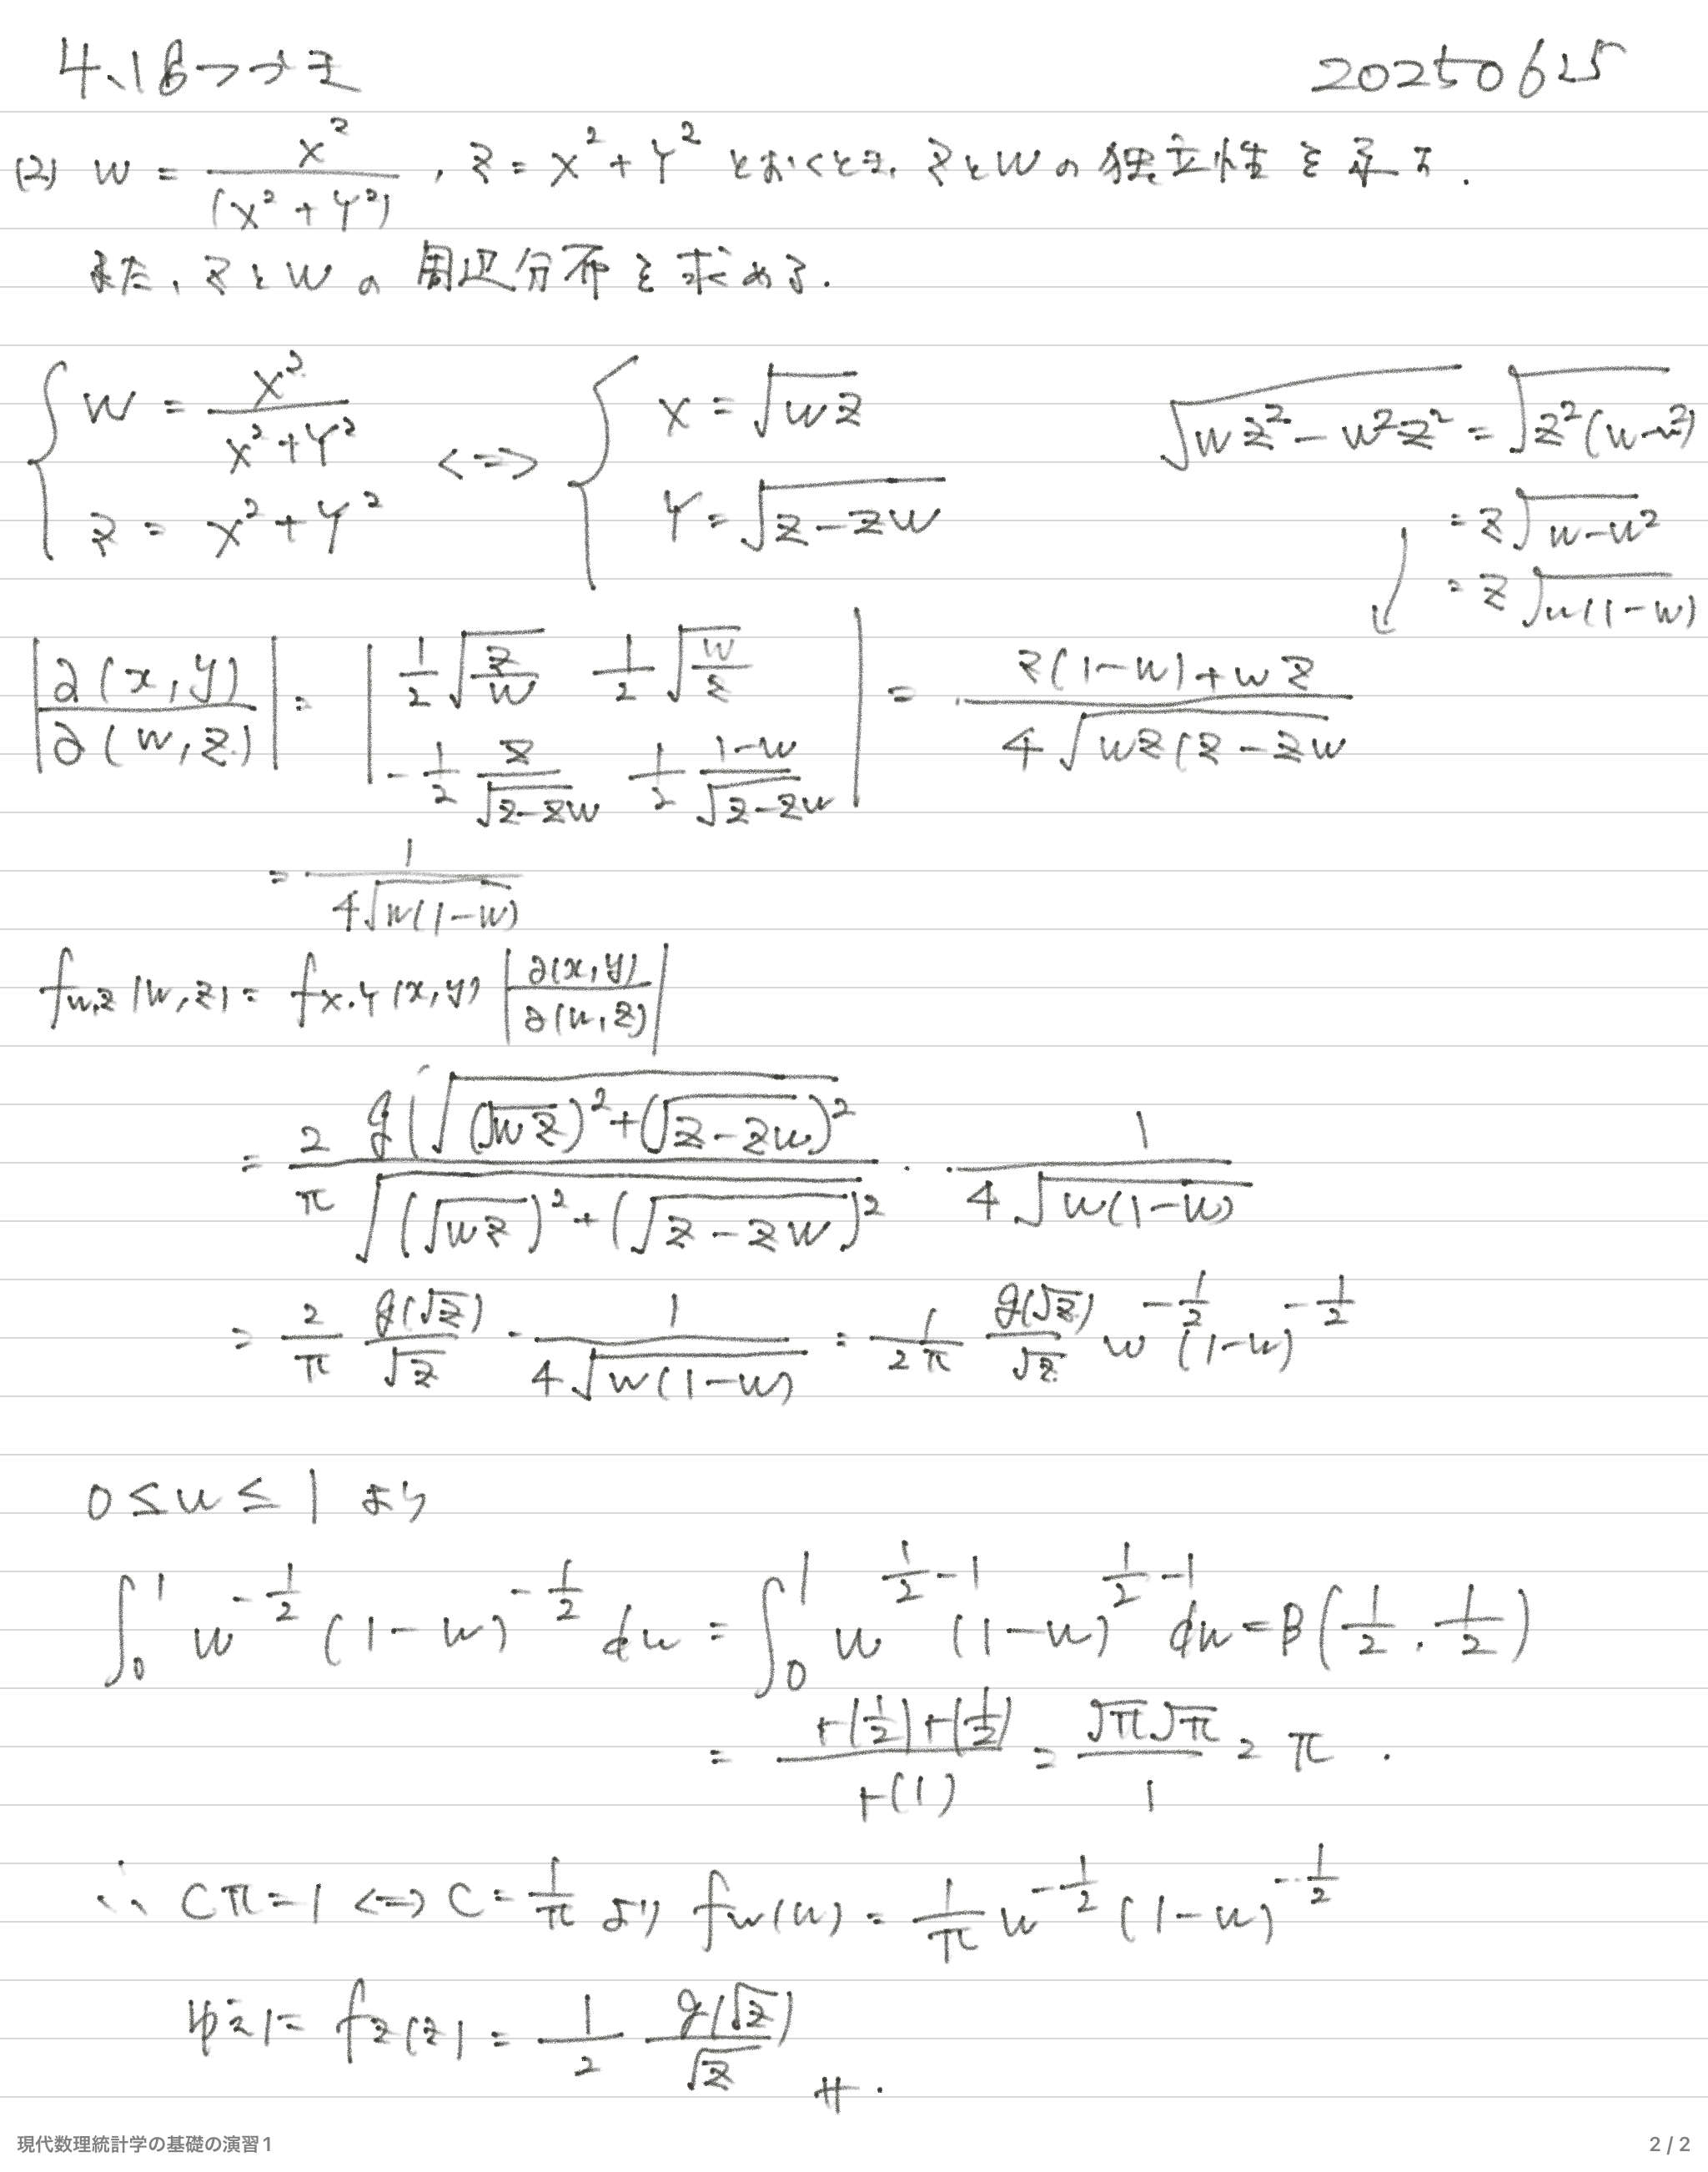 4.18つづき 20250625
(2) W = X²/(X²+Y²), Z = X²+Y² とおくとき、ZとWの独立性を示す.
また、ZとWの周辺分布を求める.
{ W = X²/(X²+Y²), Z = X²+Y² <=> { X = √(WZ), Y = √(Z-ZW)
√(WZ²-W²Z²) = √(Z²(W-W²))
= Z√(W-W²)
= Z√(W(1-W))
|∂(x,y)/∂(w,z)| = | 1/2 √(z/w) 1/2 √(w/z) ; -1/2 z/√(z-zw) 1/2 (1-w)/√(z-zw) | = (z(1-w)+wz)/(4√(wz(z-zw)
= 1/(4√(w(1-w)))
f_{W,Z}(w,z) = f_{X,Y}(x,y) |∂(x,y)/∂(w,z)|
= 2/π g(√((√(wz))²+(√(z-zw))²)/√((√(wz))²+(√(z-zw))²) · 1/(4√(w(1-w)))
= 2/π g(√z)/√z · 1/(4√(w(1-w))) = 1/(2π) g(√z)/√z w^{-1/2} (1-w)^{-1/2}
0 ≤ w ≤ 1 より
∫₀¹ w^{-1/2} (1-w)^{-1/2} dw = ∫₀¹ w^{1/2-1} (1-w)^{1/2-1} dw = B(1/2, 1/2)
= Γ(1/2)Γ(1/2)/Γ(1) = √π√π/1 = π.
∴ Cπ=1 <=> C=1/π より f_W(w) = 1/π w^{-1/2} (1-w)^{-1/2}
f_Z(z) = 1/2 g(√z)/√z
現代数理統計学の基礎の演習1 2 / 2